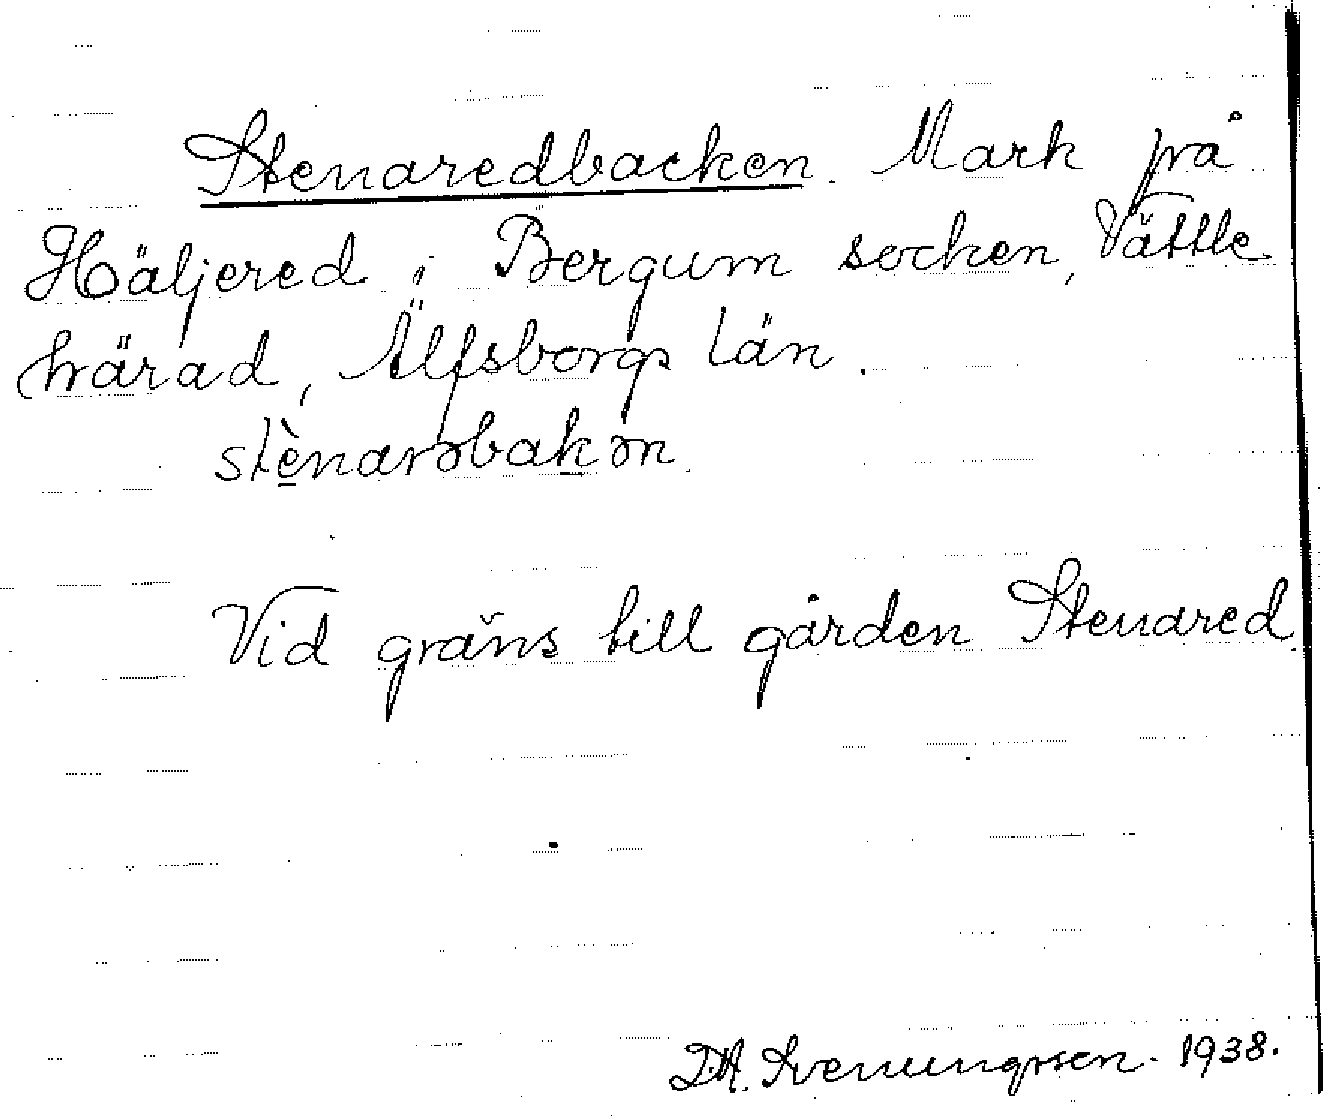 Stenaredbacken. Mark på
Häljered i Bergum socken, Vättle
härad, Älfsborgs län.
stènarəbakən.
Vid gräns till gården Stenared.
D.A. Svenungsson. 1938.